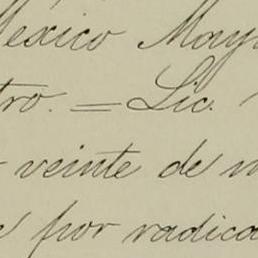 Mexico May
tro. = Lic.
veinte de
por radica